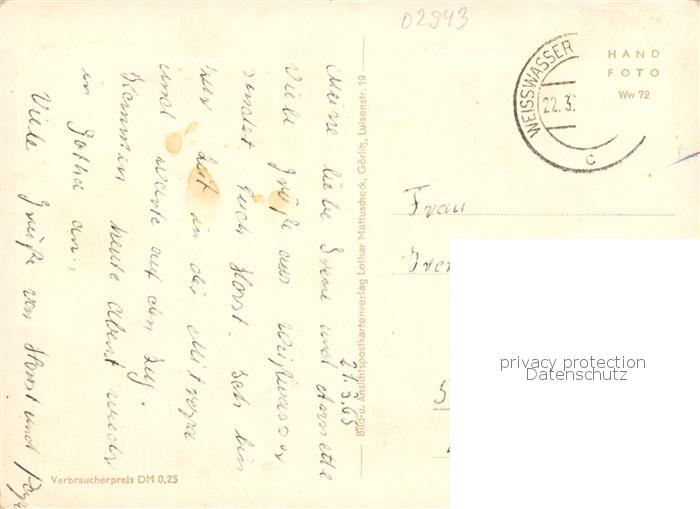 02943
WEISSWASSER
22.3.
c
HAND
FOTO
Ww 72
21.3.65
Meine liebe Irene und Annette
Viele Grüße aus Weißwasser
sendet Euch Horst. Ich bin
zur Zeit in der Mitropa
und warte auf den Zug.
Kommen heute Abend wieder
in Gotha an.
Viele Grüße von Horst und
Bild-u. Ansichtspostkartenverlag Lothar Mattuscheck, Görlitz, Luisenstr. 19
Frau
privacy protection
Datenschutz
Verbraucherpreis DM 0,25